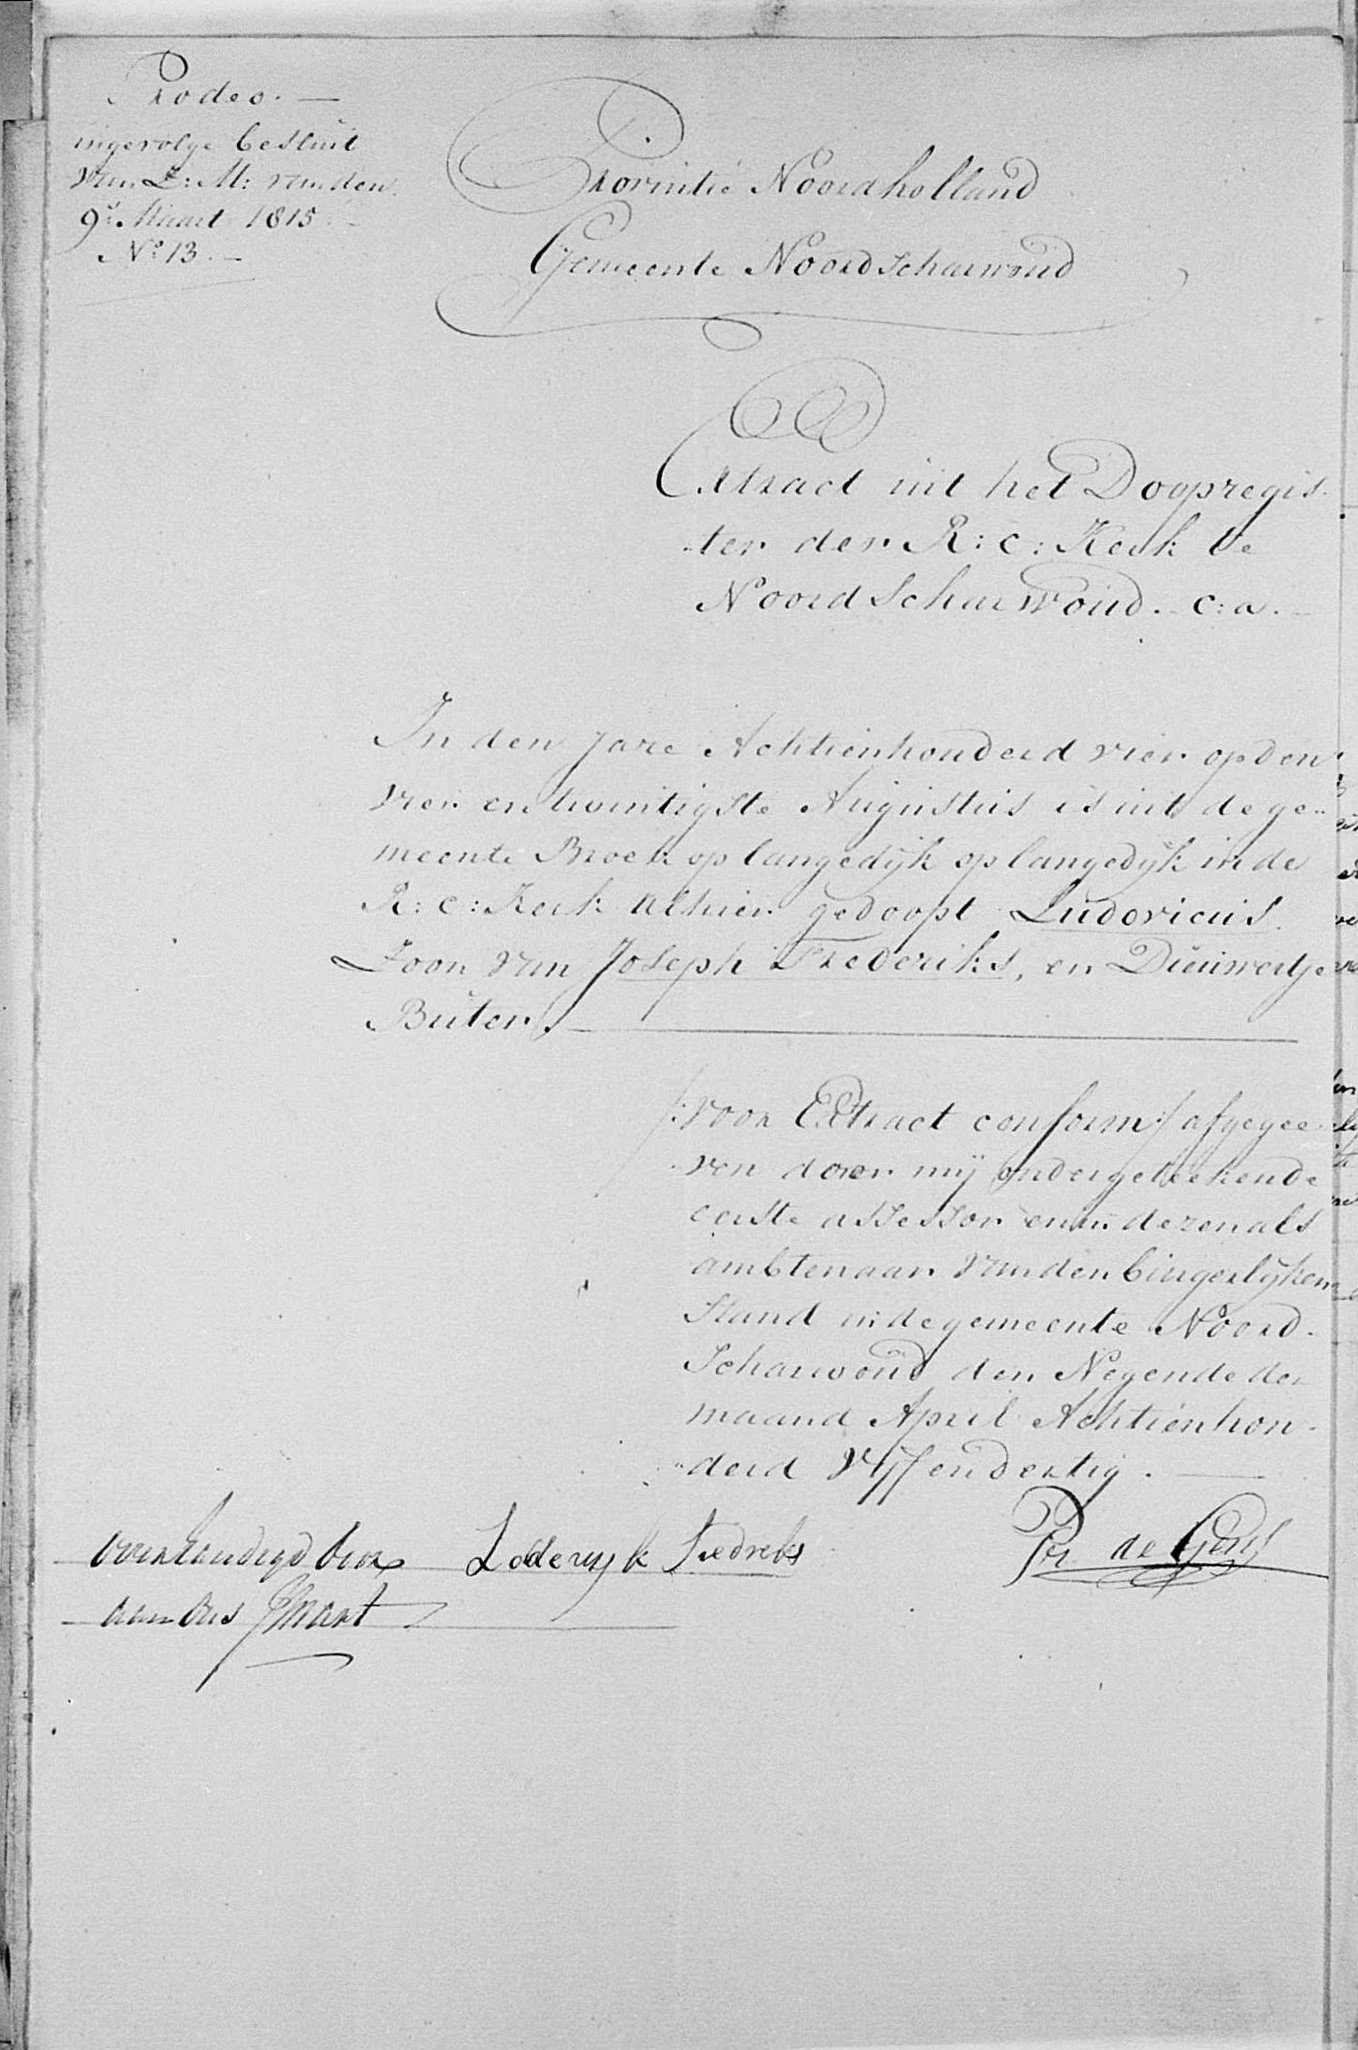 Prodeo. —
ingevolge besluit
van Z: M: van den
9e Maart 1815. —
No 13. —
Provintie Noordholland
Gemeente Noordscharwoud
Extract uit het Doopregis-
ter der R: C: Kerk te
Noord Scharwoud. C: a. —
In den Jare Achtienhonderd vier op den
vier en twintigste Augustus is uit de ge-
meente Broek op langedijk op langedijk in de
R: C: Kerk Alhier gedoopt Ludovicus.
Zoon van Joseph Frederiks, en Dieuwertje
Buter. —
/: voor Extract conform :/ afgegee-
ven door mij ondergeteekende
eerste assessor en in dezen als
ambtenaar van den burgerlijken
Stand in de gemeente Noord-
Scharwoud den Negende der
maand April Achtienhon-
derd Vijfendertig. —
overhandigd door Lodewyk Fredreks
aan ons
Pr de Geus